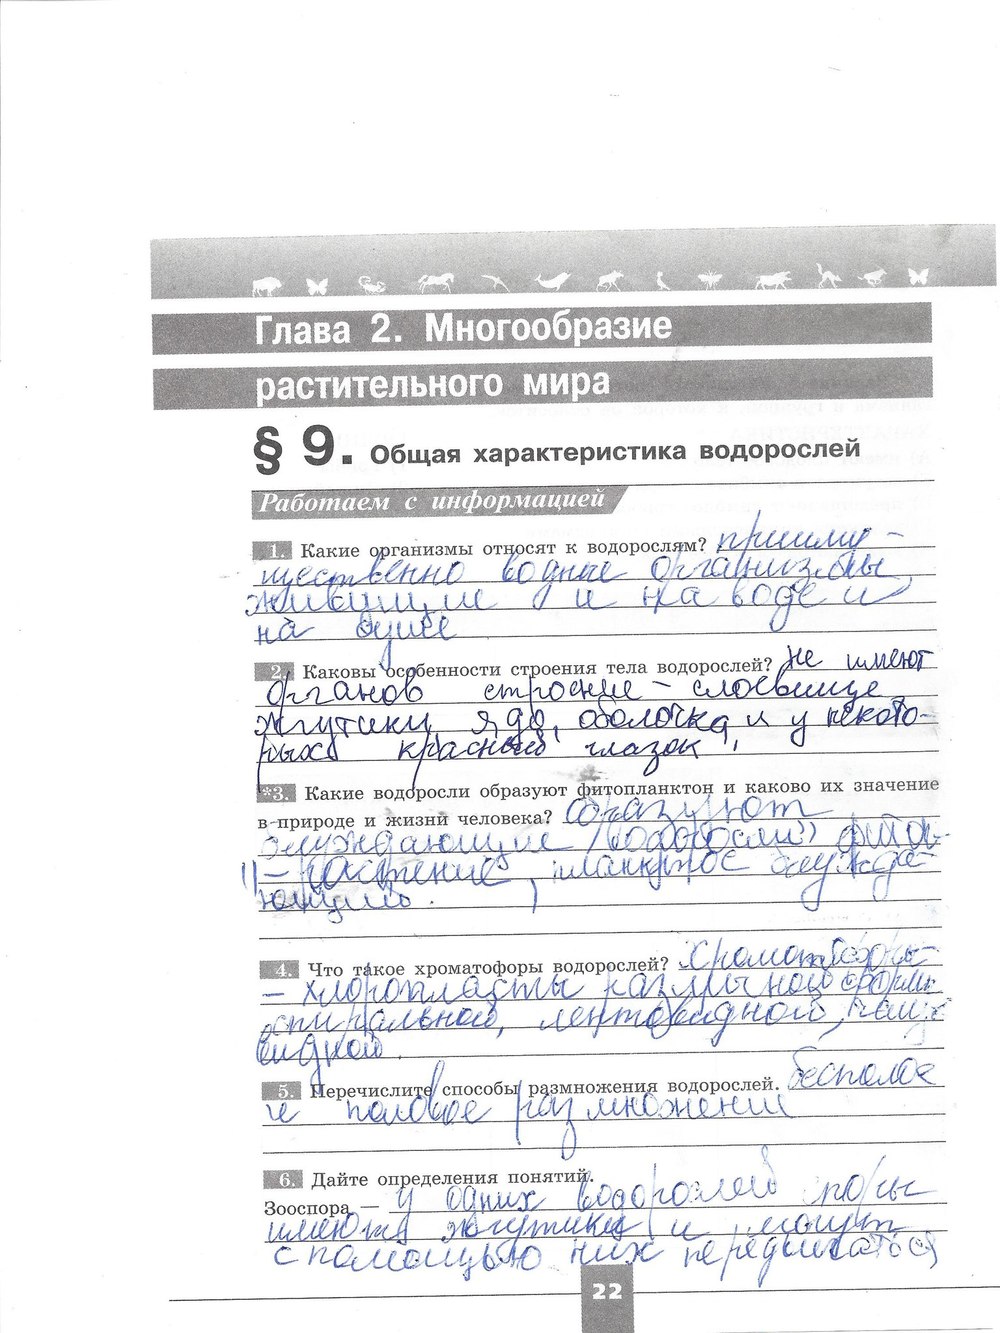 Глава 2. Многообразие
растительного мира
§ 9. Общая характеристика водорослей
Работаем с информацией
1. Какие организмы относят к водорослям? прииму-
щественно водные организмы,
живущие и на воде и
на суше
2. Каковы особенности строения тела водорослей? не имеют
органов строение – слоевище
жгутики, ядро, оболочка, и у некото-
рых красный глазок,
*3. Какие водоросли образуют фитопланктон и каково их значение
в природе и жизни человека? образуют
блуждающие водоросли)
– растение, блужда-
ющий.
4. Что такое хроматофоры водорослей? Хроматофоры-
– хлоропласты различной формы
спиральной, лентовидной,
видной.
5. Перечислите способы размножения водорослей. бесполое
и половое размножении
6. Дайте определения понятий.
Зооспора — у одних водорослей споры
имеют жгутики и могут
с помощью них передвигаться
22